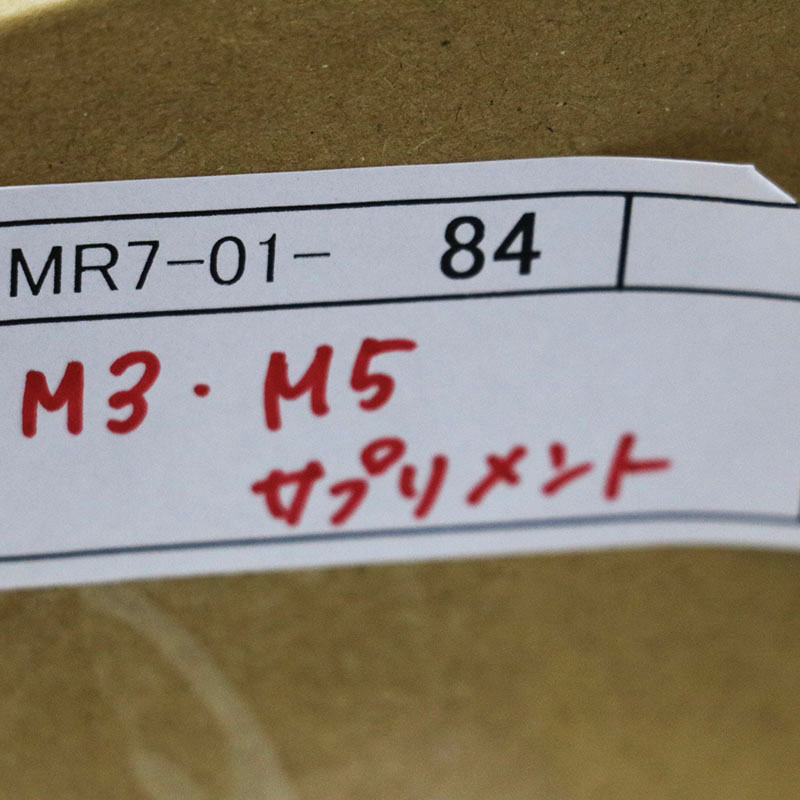 MR7-01- 84
M3・M5
サプリメント